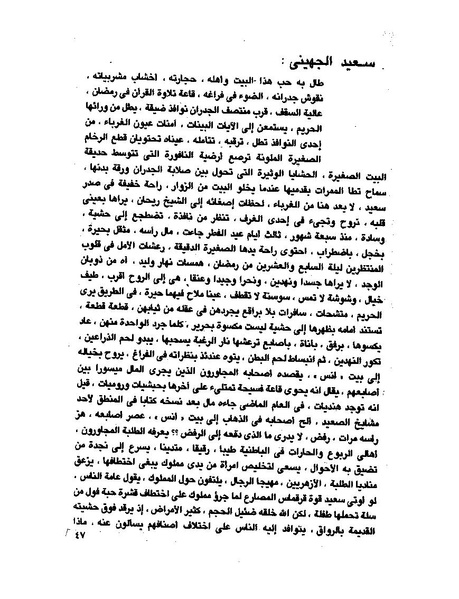 سعيد الجهينى :
طال به حب هذا البيت واهله ، حجارته ، اخشاب مشربياته ،
نقوش جدرانه ، الضوء فى فراغه ، قاعة تلاوة القران فى رمضان ،
عالية السقف ، قرب منتصف الجدران نوافذ ضيقة ، يطل من ورائها
الحريم ، يستمعن إلى الآيات البينات ، امنات عيون الغرباء ، من
إحدى النوافذ تطل ، ترقبه ، تتامله . عيناه تحتويان قطع الرخام
الصغيرة الملونة ترصع ارضية النافورة التى تتوسط حديقة
البيت الصغيرة ، الحشايا الوثيرة التى تحول بين صلابة الجدران ورقة بدنها ،
سماح تطا الممرات بقدميها عندما يخلو البيت من الزوار ، راحة خفيفة فى صدر
سعيد ، لا يعد هنا من الغرباء ، لحظات إصغائه إلى الشيخ ريحان ، يراها بعينى
قلبه ، تروح وتجىء فى إحدى الغرف ، تنظر من نافذة ، تضطجع إلى حشية ،
وسادة ، منذ سبعة شهور ، ثالث ايام عيد الفطر جاءت ، مال راسه ، مثقل بحيرة ،
بخجل ، باضطراب ، احتوى راحة يدها الصغيرة الدقيقة ، رعشات الأمل فى قلوب
المنتظرين ليلة السابع والعشرين من رمضان ، همسات نهار وليد . اه من ذوبان
الوجد ، لا يراها جسدا ونهدين ، ونحرا وجيدا وعنقا ، هى إلى الروح اقرب ، طيف
خيال ، وشوشة لا تمس ، سوسنة لا تقطف ، عينا ملاح فيهما حيرة ، فى الطريق يرى
الحريم ، متشحات ، سافرات بلا براقع يجردهن فى عقله من ثيابهن ، قطعة قطعة ،
تستند امامه بظهرها إلى حشية ليست مكسوة بحرير ، كلما جرد الواحدة منهن ، عاد
يكسوها ، برفق ، باناة ، باصابع ترعشها نار الرغبة يسحبها ، يبدو لحم الذراعين ،
تكور النهدين ، ثم انبساط لحم البطن ، يتوه عندئذ بنظراته فى الفراغ ، يروح بخياله
إلى بيت « انس » ، يقصده اصحابه المجاورون الذين يجرى المال ميسورا بين
اصابعهم ، يقال انه يحوى قاعة فسيحة تمتلىء على اخرها بحبشيات وروميات ، قيل
انه توجد هنديات ، فى العام الماضى جاءه مال بعد نسخه كتابا فى المنطق لأحد
مشايخ الصعيد ، الح اصحابه فى الذهاب إلى بيت « انس » ، عصر اصابعه ، هز
راسه مرات ، رفض ، لا يدرى ما الذى دفعه إلى الرفض ؟؟ يعرفه الطلبة المجاورون ،
اهالى الربوع والحارات فى الباطنية طيبا ، رقيقا ، متدينا ، يسرع إلى نجدة من
تضيق به الأحوال ، يسعى لتخليص امراة من يدى مملوك يبغى اختطافها ، يزعق
مناديا الطلبة ، الأزهريين ، مهيجا الرجال ، يلتفون حول المملوك ، يقول عامة الناس ،
لو اوتى سعيد قوة قرقماس المصارع لما جرؤ مملوك على اختطاف قشرة حبة فول من
سلة تحملها طفلة ، لكن الله خلقه ضئيل الحجم ، كثير الأمراض ، إذ يرقد فوق حشيته
القديمة بالرواق ، يتوافد إليه الناس على اختلاف اصنافهم يسالون عنه ، ماذا
٤٧